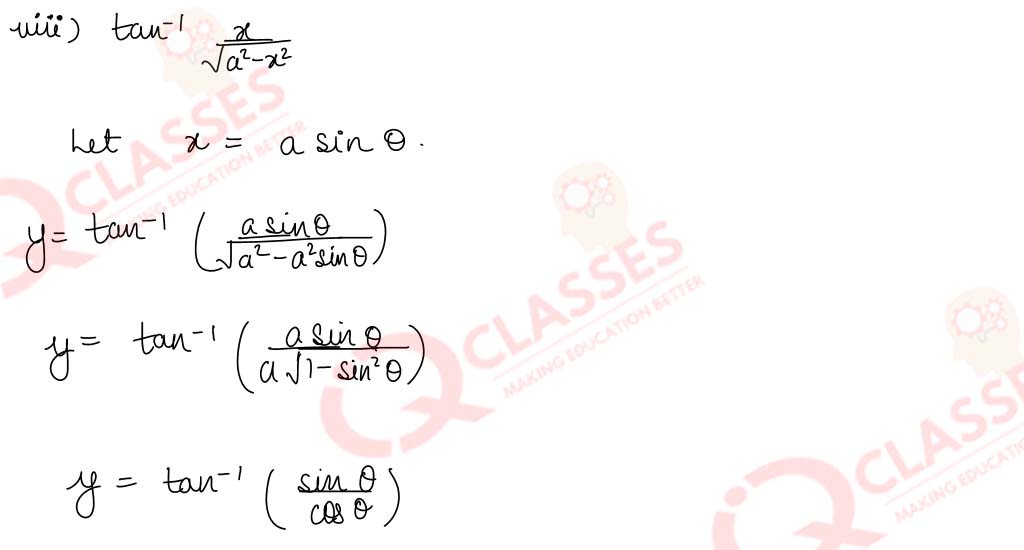 viii) tan⁻¹ x/√(a²-x²)
Let x = a sin θ.
y = tan⁻¹ (a sinθ/√(a²-a²sinθ))
y = tan⁻¹ (a sin θ/a√(1-sin²θ))
y = tan⁻¹ (sin θ/cos θ)
CLASSES
MAKING EDUCATION BETTER
CLASSES
MAKING EDUCATION BETTER
CLASSES
MAKING EDUCATION